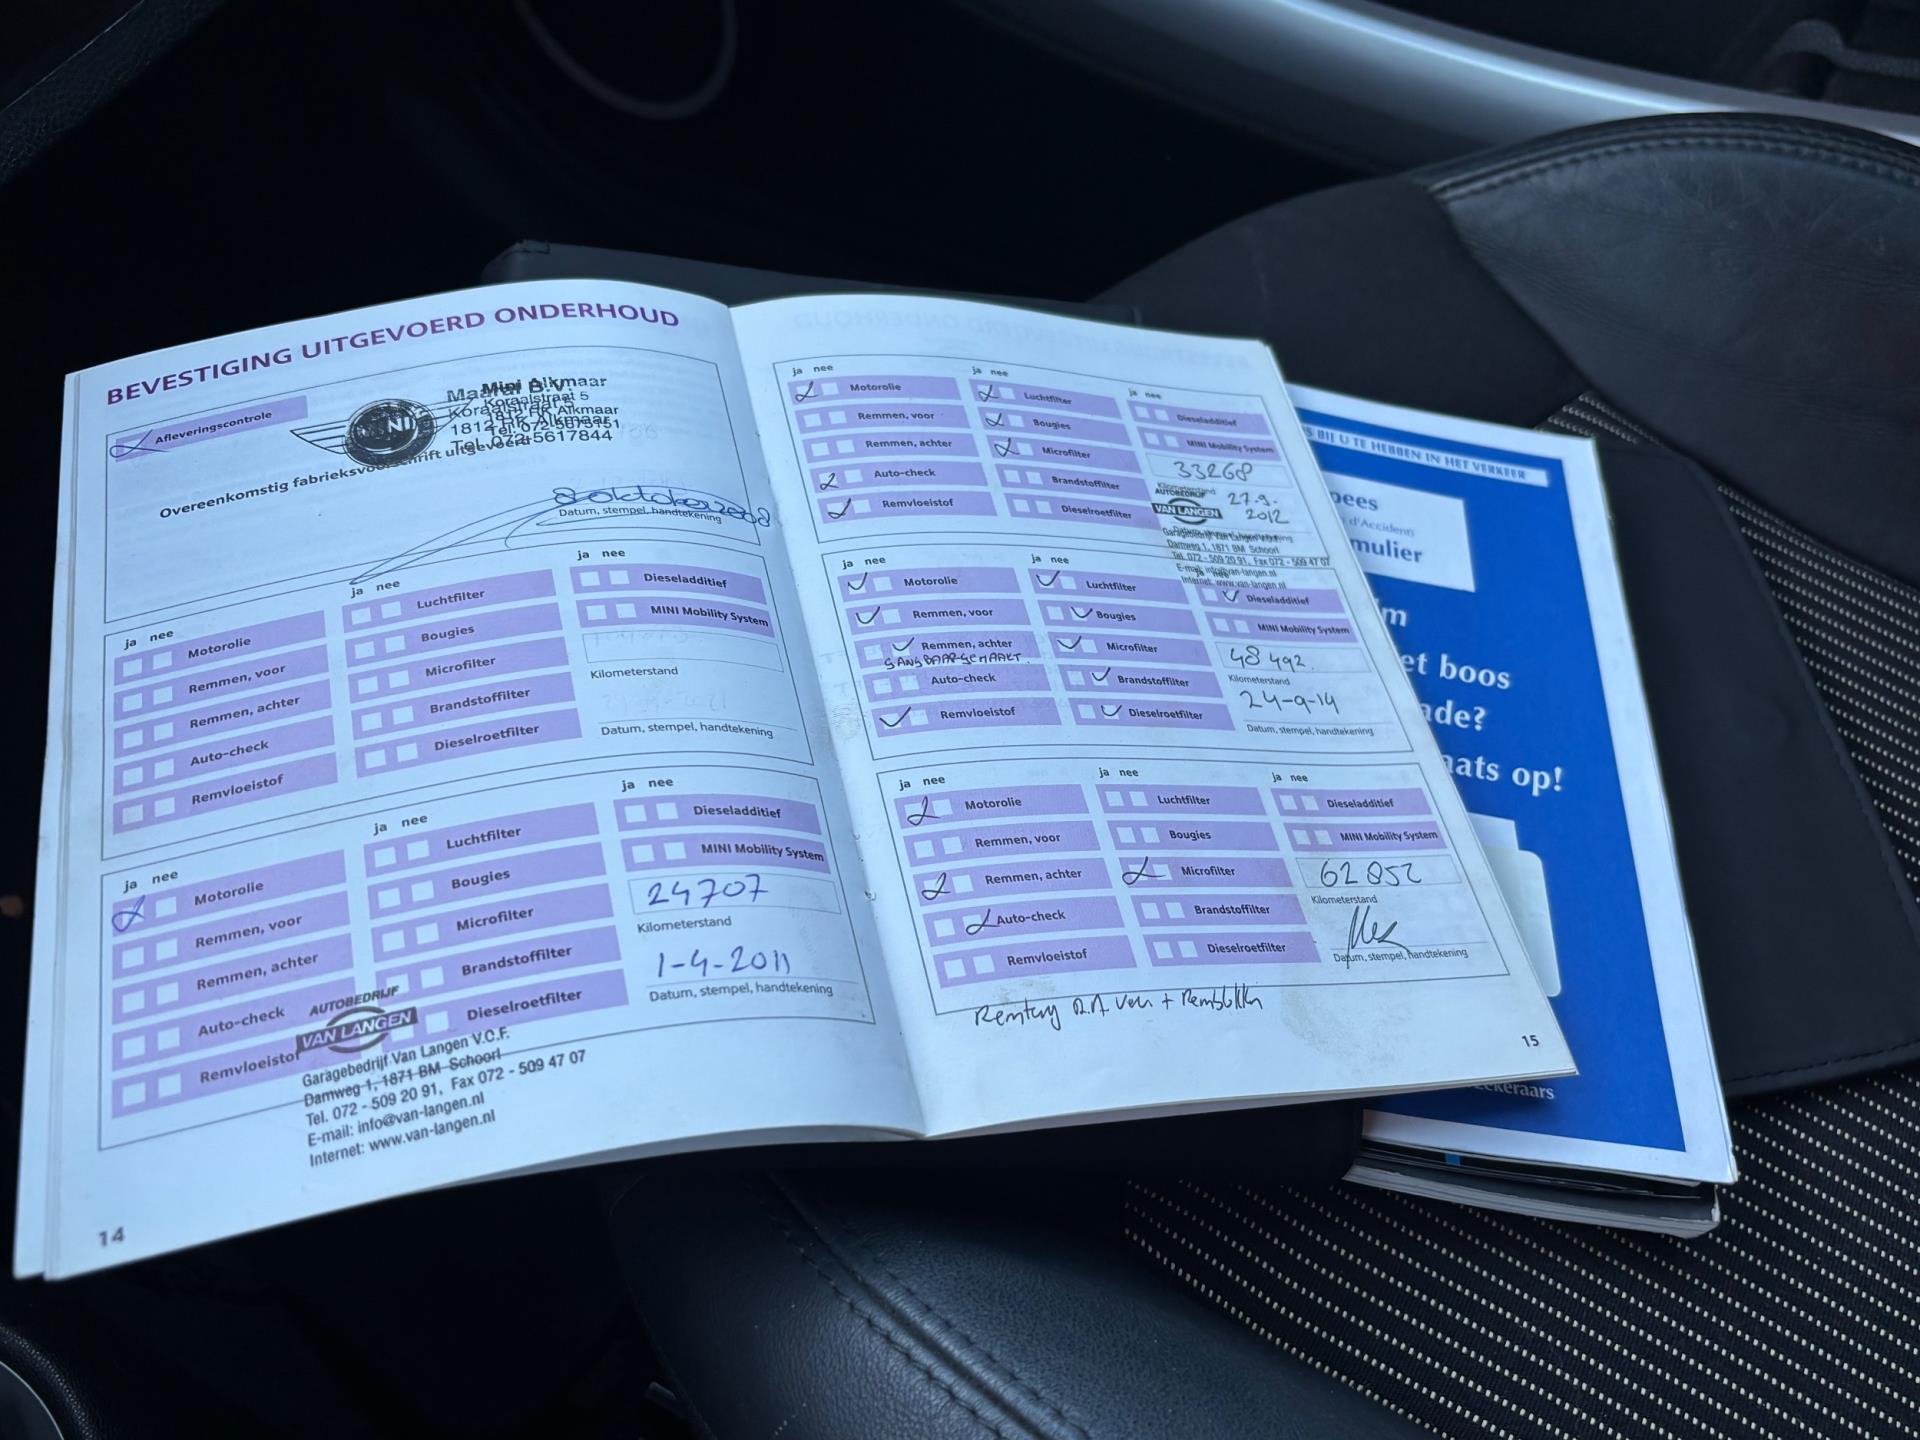 BEVESTIGING UITGEVOERD ONDERHOUD
Afleveringscontrole
Mini Alkmaar
Koraalstraat 5
1812 RK Alkmaar
Tel. 072-5617844
Overeenkomstig fabrieksvoorschrift uitgevoerd
8 oktober 2008
Datum, stempel, handtekening
ja nee
Motorolie
Remmen, voor
Remmen, achter
Auto-check
Remvloeistof
ja nee
Luchtfilter
Bougies
Microfilter
Brandstoffilter
Dieselroetfilter
ja nee
Dieseladditief
MINI Mobility System
Kilometerstand
Datum, stempel, handtekening
ja nee
Motorolie
Remmen, voor
Remmen, achter
Auto-check
Remvloeistof
ja nee
Luchtfilter
Bougies
Microfilter
Brandstoffilter
Dieselroetfilter
ja nee
Dieseladditief
MINI Mobility System
24707
Kilometerstand
1-4-2011
Datum, stempel, handtekening
AUTOBEDRIJF
VAN LANGEN
Garagebedrijf Van Langen V.O.F.
Damweg 1, 1871 BM Schoorl
Tel. 072 - 509 20 91, Fax 072 - 509 47 07
E-mail: info@van-langen.nl
Internet: www.van-langen.nl
14
ja nee
Motorolie
Remmen, voor
Remmen, achter
Auto-check
Remvloeistof
ja nee
Luchtfilter
Bougies
Microfilter
Brandstoffilter
Dieselroetfilter
ja nee
Dieseladditief
MINI Mobility System
33268
Kilometerstand
27.9.
2012
AUTOBEDRIJF
VAN LANGEN
Damweg 1, 1871 BM Schoorl
Tel. 072 - 509 20 91, Fax 072 - 509 47 07
E-mail: info@van-langen.nl
Internet: www.van-langen.nl
ja nee
Motorolie
Remmen, voor
Remmen, achter
GANGBAAR GEMAAKT
Auto-check
Remvloeistof
ja nee
Luchtfilter
Bougies
Microfilter
Brandstoffilter
Dieselroetfilter
ja nee
Dieseladditief
MINI Mobility System
48 492
Kilometerstand
24-9-14
Datum, stempel, handtekening
ja nee
Motorolie
Remmen, voor
Remmen, achter
Auto-check
Remvloeistof
ja nee
Luchtfilter
Bougies
Microfilter
Brandstoffilter
Dieselroetfilter
ja nee
Dieseladditief
MINI Mobility System
62852
Kilometerstand
Datum, stempel, handtekening
15
S BIJ U TE HEBBEN IN HET VERKEER
pees
d'Accident
mulier
m
et boos
ade?
aats op!
ekeraars